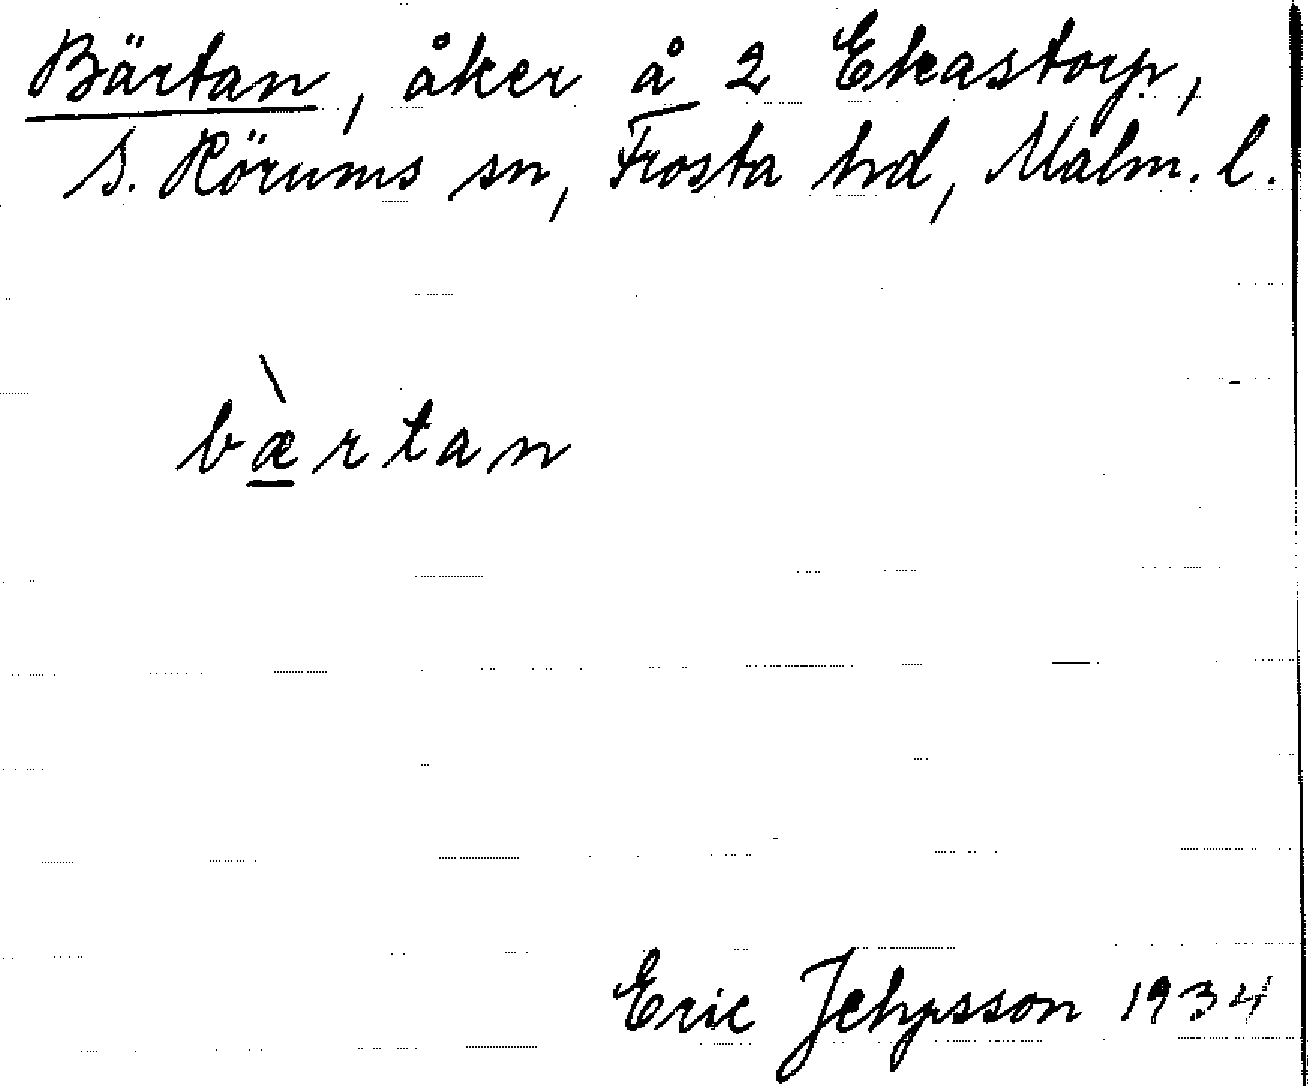 Bärtan, åker å 2 Ekastorp,
S. Rörums sn, Frosta hd, Malm. l.
bæ̀rtan
Eric Jehpsson 1934